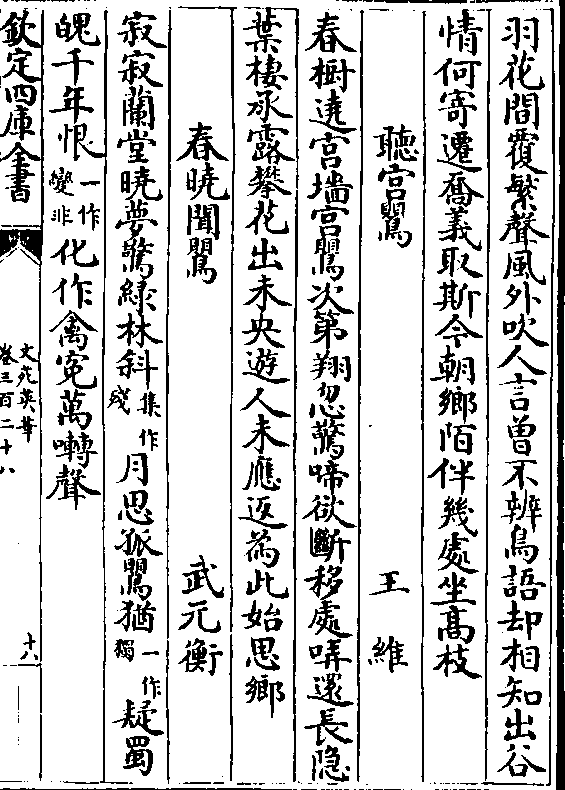 羽花間覆繁聲風外吹人言曾不辨鳥語却相知出谷
情何寄遷喬義取斯今朝鄉陌伴幾處坐高枝
聽宫鸎 王維
春樹遶宫墻宫鸎次第翔忽驚啼欲斷移處哢還長隐
葉棲承露攀花出未央遊人未應返為此始思鄉
春曉聞鸎 武元衡
寂寂蘭堂曉夢驚緑林斜集作殘月思孤鸎猶一作獨疑蜀
魄千年恨一作變非化作禽寃萬囀聲
欽定四庫全書
文苑英華
卷三百二十八
十八